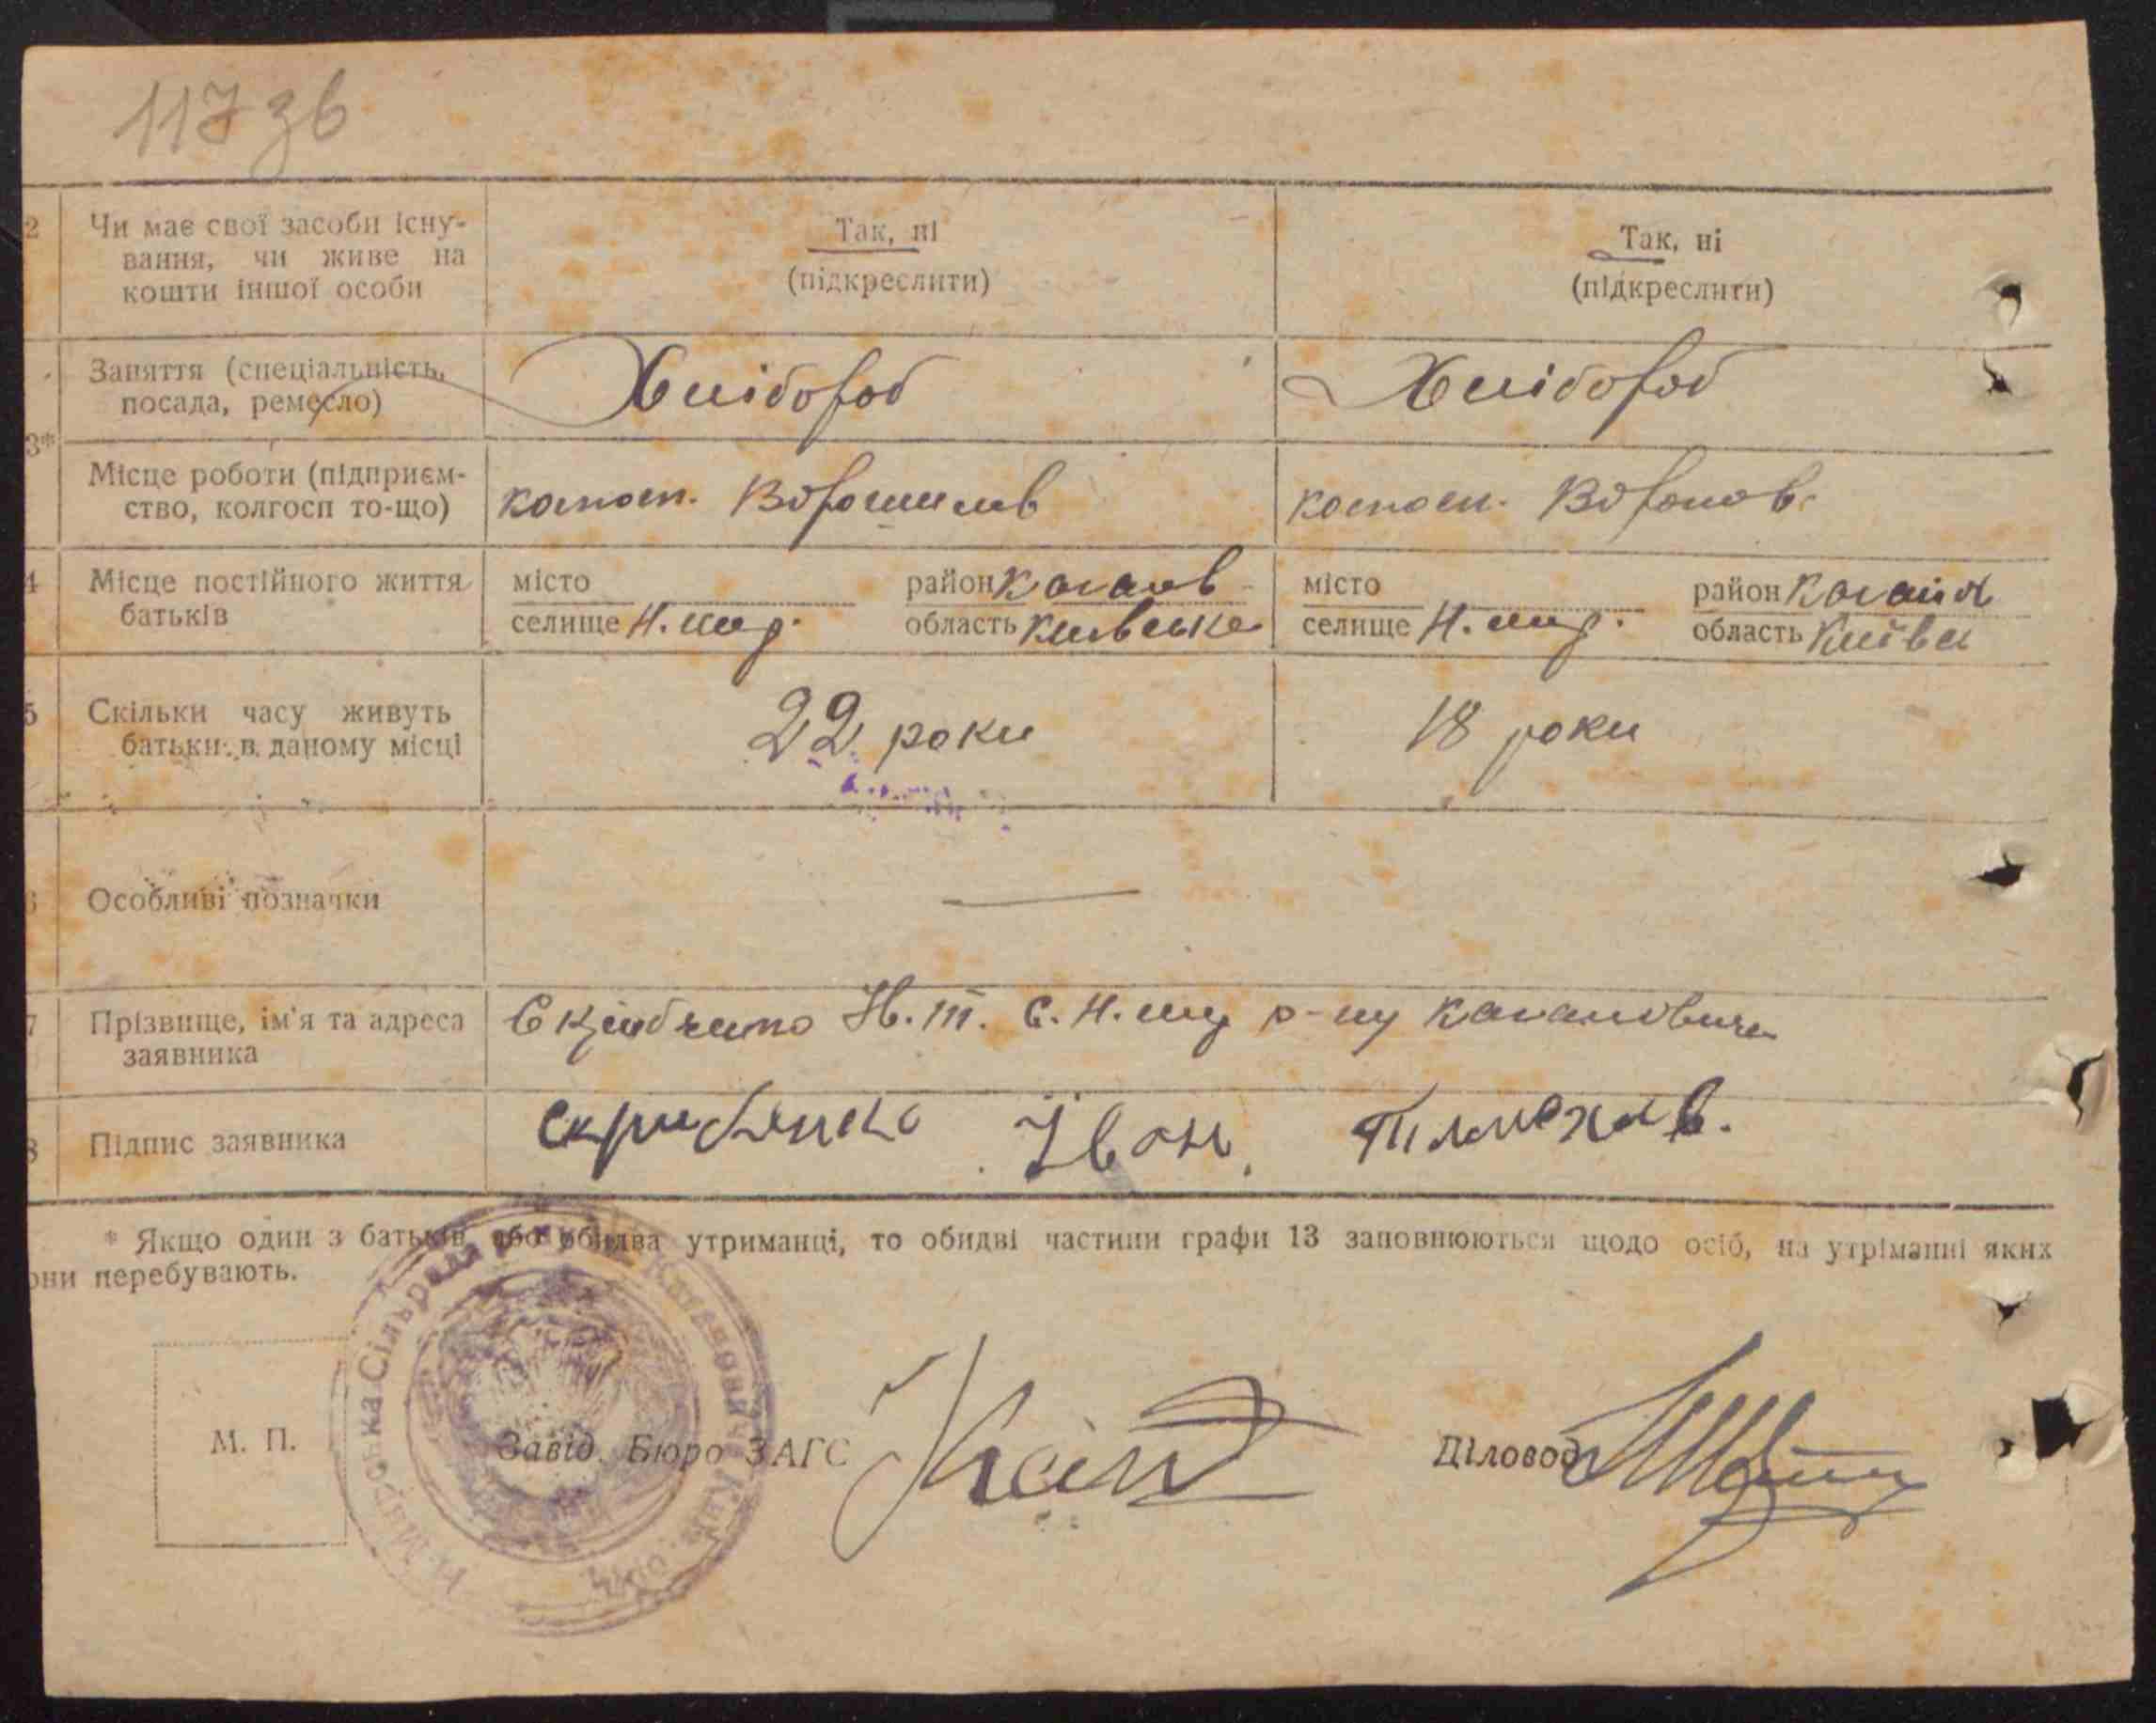 117 зв
2 Чи має свої засоби існу-
вання, чи живе на
кошти іншої особи
Так, ні
(підкреслити)
Так, ні
(підкреслити)
Заняття (спеціальність,
посада, ремесло)
Хлібороб
Хлібороб
3*
Місце роботи (підприєм-
ство, колгосп то-що)
колгосп. Ворошилов
колгосп.
4 Місце постійного життя
батьків
місто
селище Н. Мир.
район Каганов
область Київська
місто
селище Н. Мир.
район
область
5 Скільки часу живуть
батьки в даному місці
22 роки
18 роки
6 Особливі позначки
—
7 Прізвище, ім'я та адреса
заявника
с. Н. Мир р-ну Кагановича
8 Підпис заявника
Іван
* Якщо один з батьків або обидва утриманці, то обидві частини графи 13 заповнюються щодо осіб, на утріманні яких
они перебувають.
М. П.
Завід. Бюро ЗАГС
Діловод